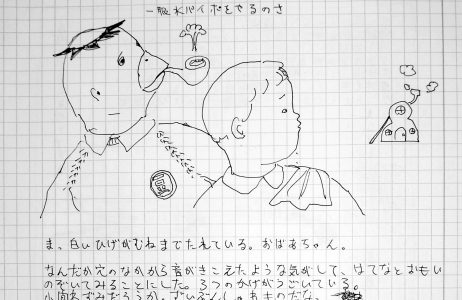 一服水パイポをやるのさ
ま、白いひげがむねまでたれている。おばあちゃん。
なんだか穴のなかから音がきこえたような気がして、はてなとおもい
のぞいてみることにした。3つのかげがうごいている。